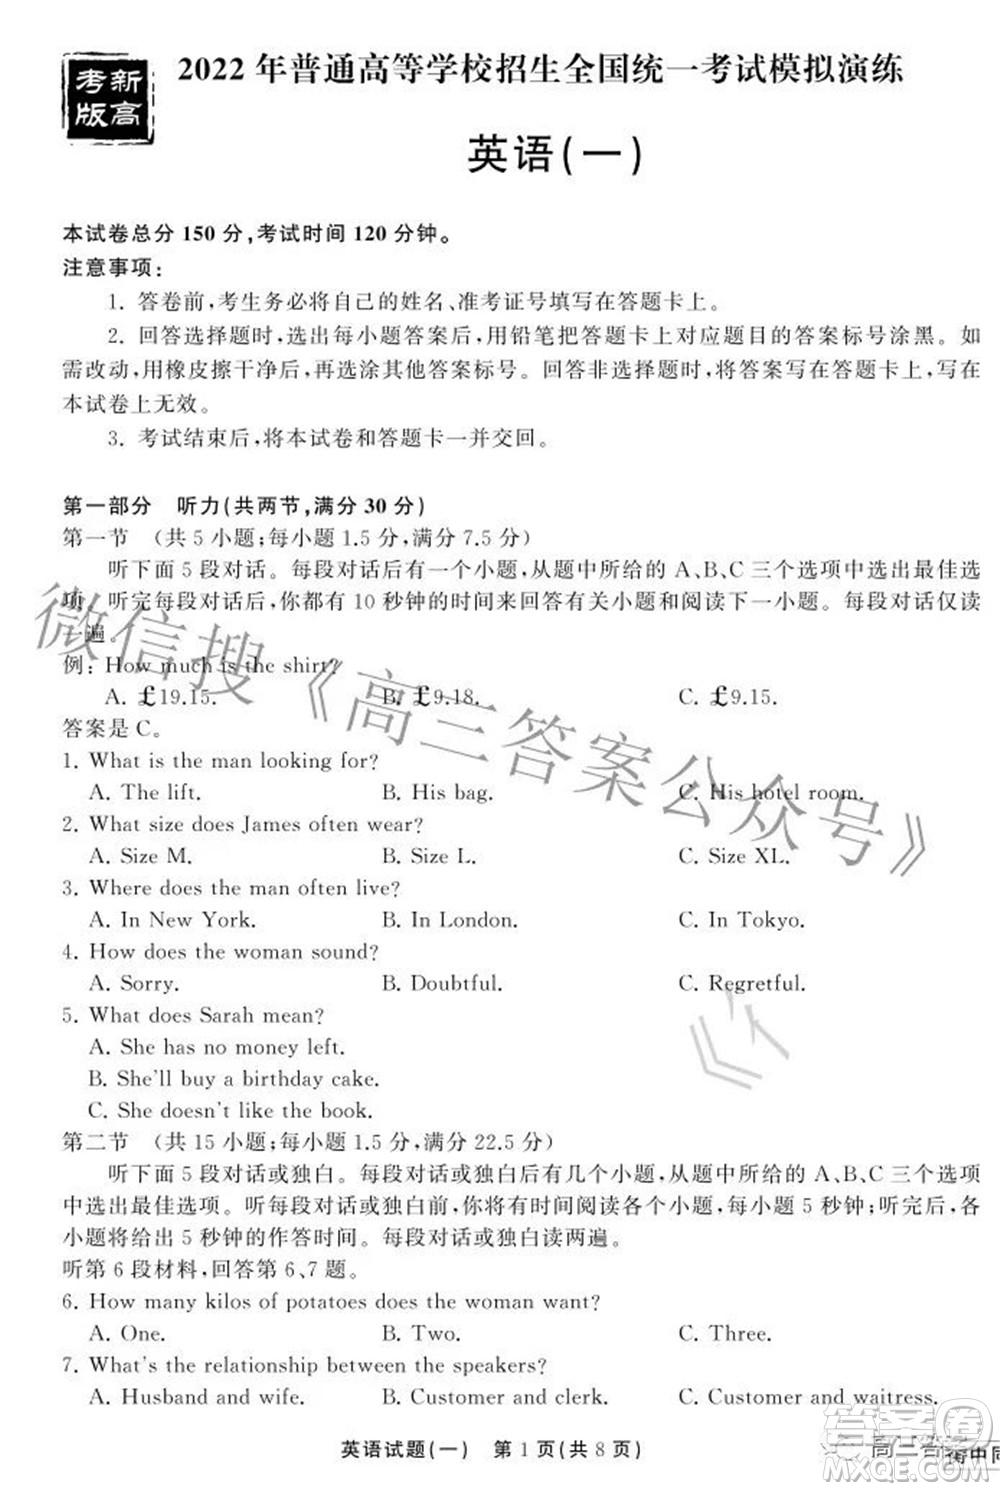 新高考版
2022 年普通高等学校招生全国统一考试模拟演练
英语(一)
本试卷总分 150 分,考试时间 120 分钟。
注意事项:
1. 答卷前,考生务必将自己的姓名、准考证号填写在答题卡上。
2. 回答选择题时,选出每小题答案后,用铅笔把答题卡上对应题目的答案标号涂黑。如
需改动,用橡皮擦干净后,再选涂其他答案标号。回答非选择题时,将答案写在答题卡上,写在
本试卷上无效。
3. 考试结束后,将本试卷和答题卡一并交回。
第一部分 听力(共两节,满分 30 分)
第一节 (共 5 小题;每小题 1.5 分,满分 7.5 分)
听下面 5 段对话。每段对话后有一个小题,从题中所给的 A、B、C 三个选项中选出最佳选
项。听完每段对话后,你都有 10 秒钟的时间来回答有关小题和阅读下一小题。每段对话仅读
一遍。
例: How much is the shirt?
A. £19.15. B. £9.18. C. £9.15.
答案是 C。
1. What is the man looking for?
A. The lift. B. His bag. C. His hotel room.
2. What size does James often wear?
A. Size M. B. Size L. C. Size XL.
3. Where does the man often live?
A. In New York. B. In London. C. In Tokyo.
4. How does the woman sound?
A. Sorry. B. Doubtful. C. Regretful.
5. What does Sarah mean?
A. She has no money left.
B. She'll buy a birthday cake.
C. She doesn't like the book.
第二节 (共 15 小题;每小题 1.5 分,满分 22.5 分)
听下面 5 段对话或独白。每段对话或独白后有几个小题,从题中所给的 A、B、C 三个选项
中选出最佳选项。听每段对话或独白前,你将有时间阅读各个小题,每小题 5 秒钟;听完后,各
小题将给出 5 秒钟的作答时间。每段对话或独白读两遍。
听第 6 段材料,回答第 6、7 题。
6. How many kilos of potatoes does the woman want?
A. One. B. Two. C. Three.
7. What's the relationship between the speakers?
A. Husband and wife. B. Customer and clerk. C. Customer and waitress.
英语试题(一) 第 1 页(共 8 页)
微信搜《高三答案公众号》
答案圈
MXQE.COM
高三答
衡中同